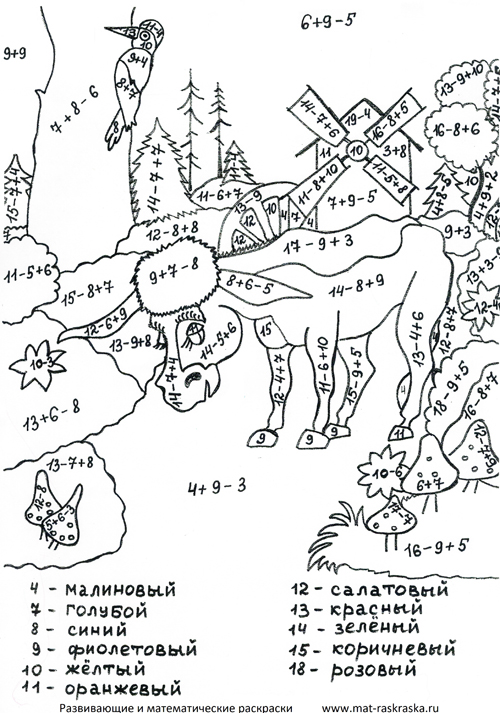 6+9-5
11-4
13
10
9+4
9+9
8+7
7+8-6
8
13-9+10
14-7+6
19-4
16-8+5
16-8+6
11
10
3+8
14-7+7
15-7+4
11-8+10
11-5+8
4+8-5
10
4+9+2
11-6+7
13-9
12
10
7+9-5
4
7
4
12
12-8+8
17-9+3
9+3
11-5+6
15-8+7
9+7-8
8+6-5
14-8+9
13+3-
12-4
12-6+9
13-9+8
14-5+6
15
13-4+6
12-8+7
10-3
11-7+4
12-4+7
11-6+10
15-9+5
18-9+5
16-8+7
13+6-8
4
9
9
9
11
13-7+8
12-8
5+6-3
4+9-3
10-6
6+7
17-7
16-9+5
4 - малиновый
7 - голубой
8 - синий
9 - фиолетовый
10 - жёлтый
11 - оранжевый
12 - салатовый
13 - красный
14 - зелёный
15 - коричневый
18 - розовый
Развивающие и математические раскраски www.mat-raskraska.ru